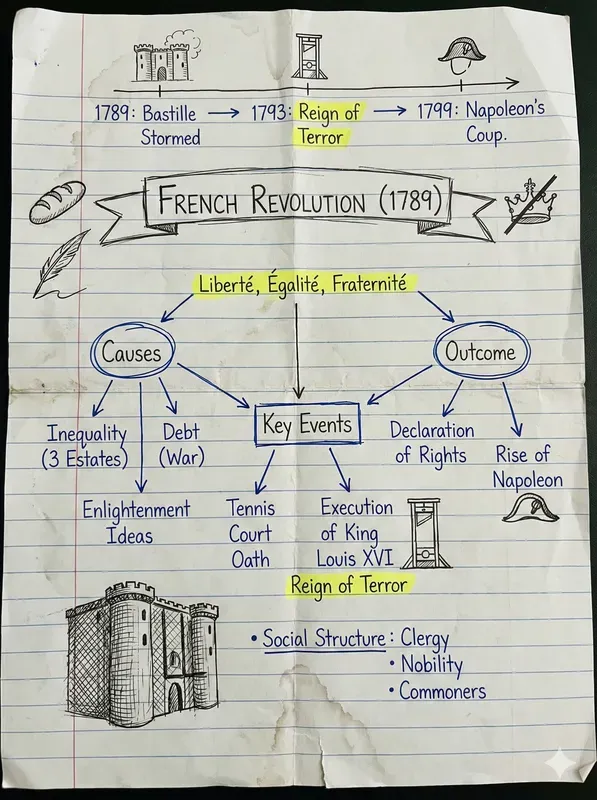 1789: Bastille Stormed → 1793: Reign of Terror → 1799: Napoleon's Coup.
FRENCH REVOLUTION (1789)
Liberté, Égalité, Fraternité
Causes
Outcome
Key Events
Inequality
(3 Estates)
Debt
(War)
Enlightenment
Ideas
Tennis
Court
Oath
Execution
of King
Louis XVI
Reign of Terror
Declaration
of Rights
Rise of
Napoleon
• Social Structure: Clergy
• Nobility
• Commoners